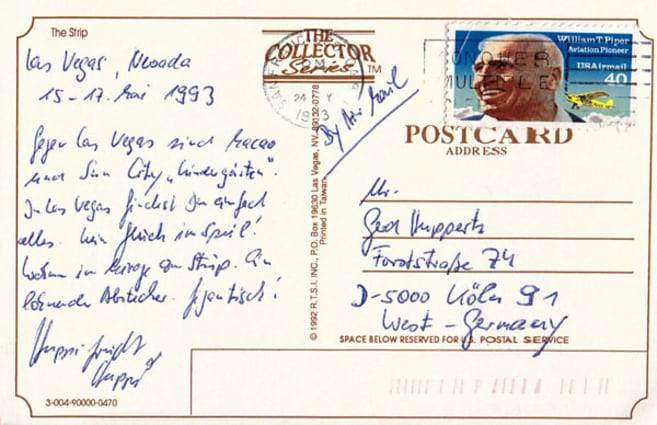 The Strip
Las Vegas, Nevada
15-17. Mai 1993
Gegen Las Vegas sind Macao
und Sun City „Kindergärten".
In Las Vegas findest Du einfach
alles. Kein Glück im Spiel!
Wohnen im Mirage am Strip. Ein
lohnender Abstecher. Gigantisch!
3-004-90000-0470
THE
COLLECTOR
Series™
© 1992 R.T.S.I. INC., P.O. Box 19630 Las Vegas, NV 89132-0778
Printed in Taiwan
By Air Mail
SAN FRANCISCO
24
1993
William T. Piper
Aviation Pioneer
US Airmail
40
POSTCARD
ADDRESS
Mr.
Gerd Huppertz
Forststraße 74
D-5000 Köln 91
West-Germany
SPACE BELOW RESERVED FOR U.S. POSTAL SERVICE